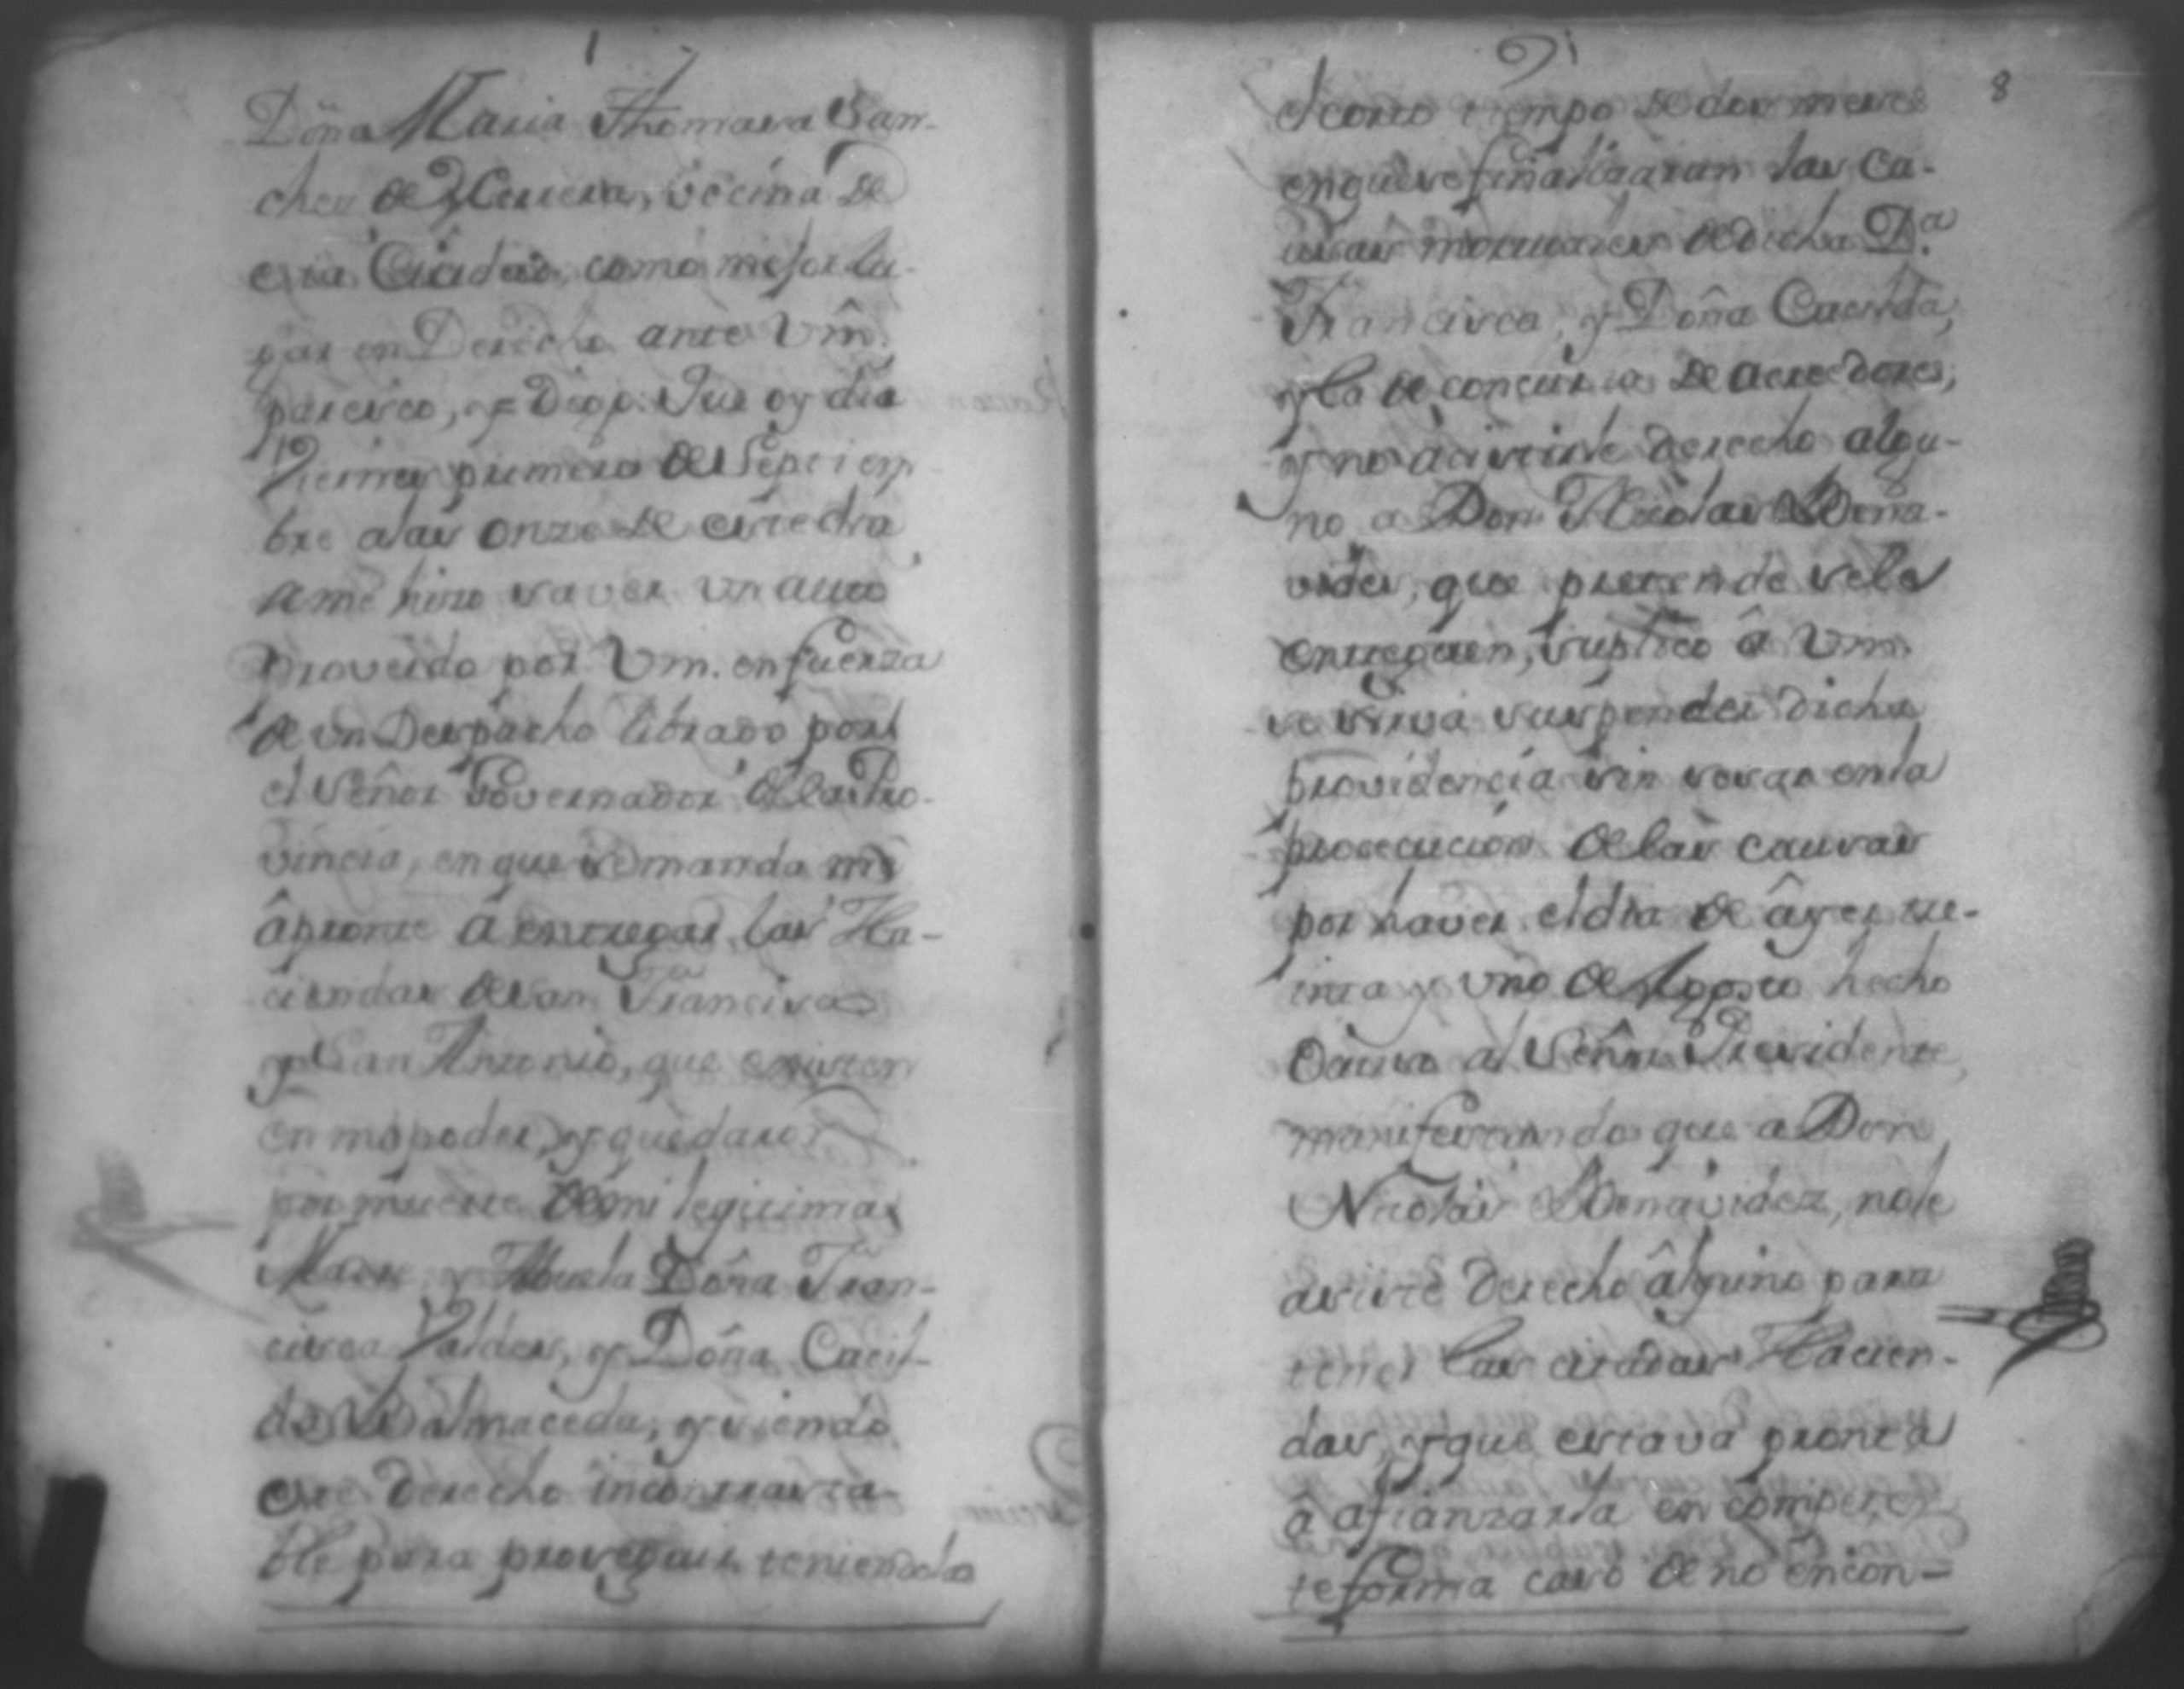 Doña Maria Thomasa San-
chez de Herrera, vecina de
esta Ciudad, como mejor lu-
gar en Derecho ante Vm.
paresco, y Digo: Que oy dia
Viernes primero de Septiem-
bre a las onze de este dia
se me hizo saver un auto
Proveido por Vm. en fuerza
de un Despacho librado por
el Señor Governador de la Pro-
vincia, en que se manda me
âpronte â entregar las Ha-
ciendas de San Francisco
y San Antonio, que existen
en mi poder, y quedaron
por muerte de mi legitima
Madre, y Abuela Doña Fran-
cisca Valdes, y Doña Casil-
da Balmaceda, y siendo
este derecho incontrasta-
ble para proseguir teniendolas
8
el corto tiempo de dos meses
en que se finalizaran las ca-
usas mortuales de dicha D.ª
Francisca, y Doña Casilda,
y la de concurso de acredores,
y no acistirle derecho algu-
no a Don Nicolas Bena-
vides, que pretende se le
entreguen, suplico â Vm.
se sirva suspender dicha
providencia sin sesar en la
prosecucion de las causas
por haver el dia de âyer tre-
inta y uno de Agosto hecho
Ocurso al Señor Presidente,
manifestando que a Don
Nicolas Benavidez, no le
asiste derecho âlguno para
tener las citadas Hacien-
das, y que estava pronta
â afianzarla en competen-
te forma caso de no encon=